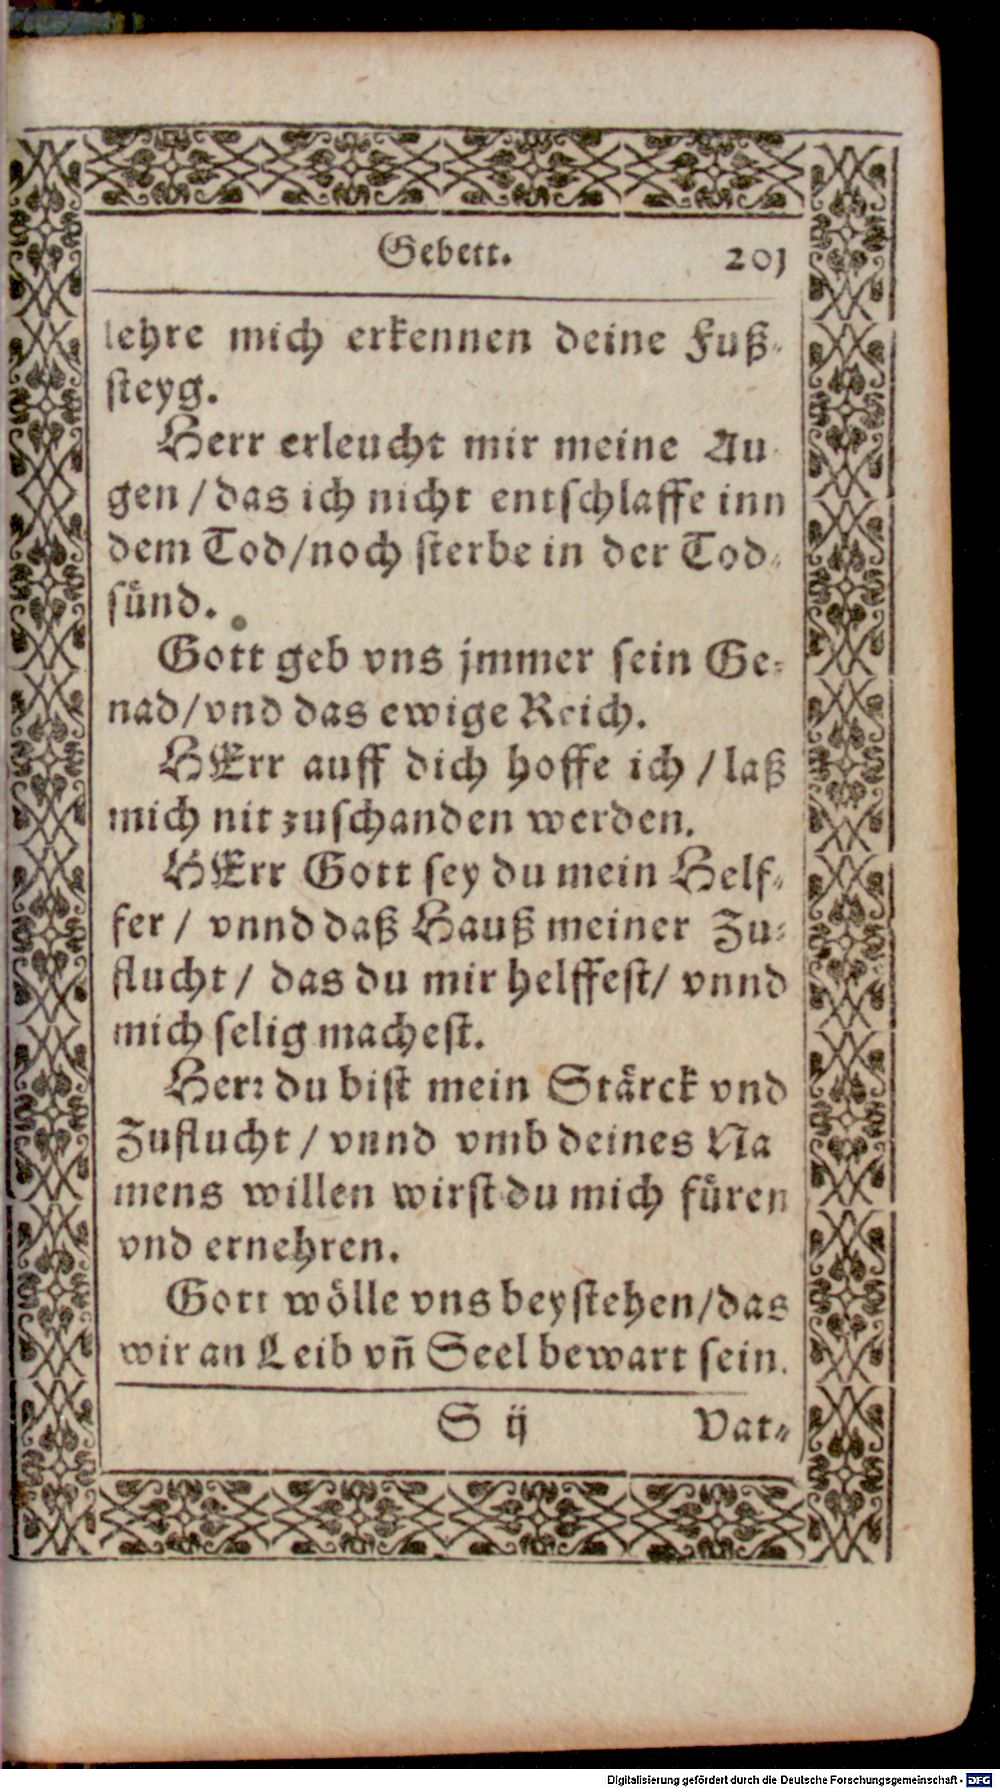 Gebett. 201
lehre mich erkennen deine Fuß-
steyg.
Herr erleucht mir meine Au
gen / das ich nicht entschlaffe inn
dem Tod/noch sterbe in der Tod-
sünd.
Gott geb vns jmmer sein Ge-
nad/vnd das ewige Reich.
HErr auff dich hoffe ich / laß
mich nit zuschanden werden.
HErr Gott sey du mein Helf-
fer / vnnd daß Hauß meiner Zu-
flucht / das du mir helffest/ vnnd
mich selig machest.
Herr du bist mein Stärck vnd
Zuflucht / vnnd vmb deines Na
mens willen wirst du mich füren
vnd ernehren.
Gott wölle vns beystehen/das
wir an Leib vn̄ Seel bewart sein.
S ij Vat-
Digitalisierung gefördert durch die Deutsche Forschungsgemeinschaft - DFG